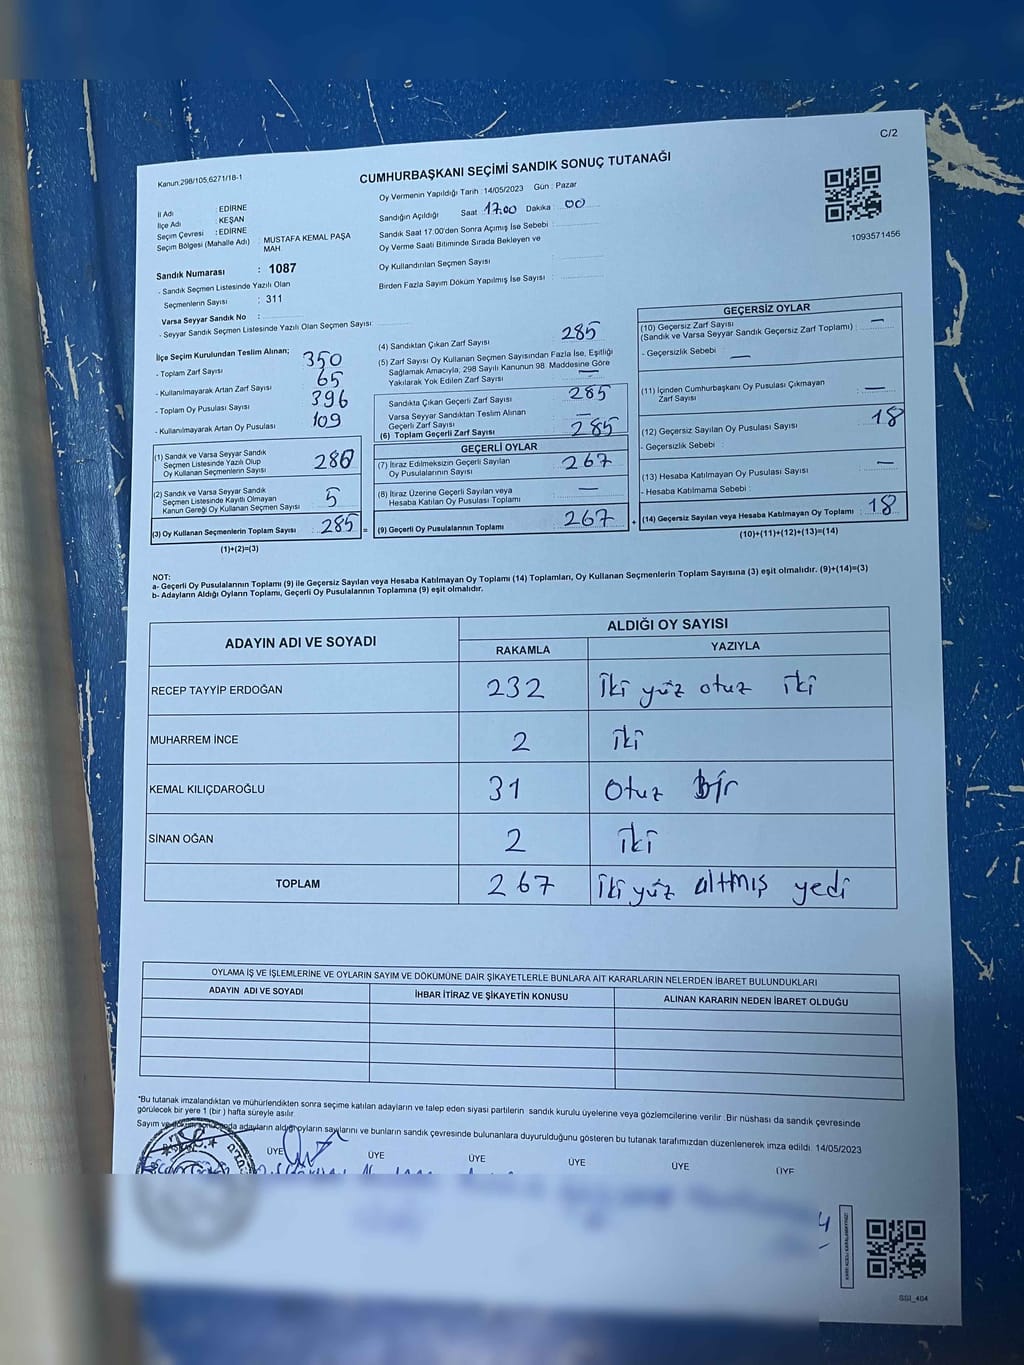 C/2
Kanun:298/105;6271/18-1
CUMHURBAŞKANI SEÇİMİ SANDIK SONUÇ TUTANAĞI
İl Adı : EDİRNE
İlçe Adı : KEŞAN
Seçim Çevresi : EDİRNE
Seçim Bölgesi (Mahalle Adı) : MUSTAFA KEMAL PAŞA
MAH
Sandık Numarası : 1087
- Sandık Seçmen Listesinde Yazılı Olan
Seçmenlerin Sayısı : 311
Varsa Seyyar Sandık No :
- Seyyar Sandık Seçmen Listesinde Yazılı Olan Seçmen Sayısı:
Oy Vermenin Yapıldığı Tarih : 14/05/2023 Gün : Pazar
Sandığın Açıldığı Saat 17.00 Dakika : 00
Sandık Saat 17:00'den Sonra Açımış İse Sebebi :
Oy Verme Saati Bitiminde Sırada Bekleyen ve
Oy Kullandırılan Seçmen Sayısı :
Birden Fazla Sayım Döküm Yapılmış İse Sayısı :
1093571456
İlçe Seçim Kurulundan Teslim Alınan;
- Toplam Zarf Sayısı : 350
- Kullanılmayarak Artan Zarf Sayısı : 65
- Toplam Oy Pusulası Sayısı : 396
- Kullanılmayarak Artan Oy Pusulası : 109
(1) Sandık ve Varsa Seyyar Sandık
Seçmen Listesinde Yazılı Olup
Oy Kullanan Seçmenlerin Sayısı : 280
(2) Sandık ve Varsa Seyyar Sandık
Seçmen Listesinde Kayıtlı Olmayan
Kanun Gereği Oy Kullanan Seçmen Sayısı : 5
(3) Oy Kullanan Seçmenlerin Toplam Sayısı : 285 =
(1)+(2)=(3)
(4) Sandıktan Çıkan Zarf Sayısı : 285
(5) Zarf Sayısı Oy Kullanan Seçmen Sayısından Fazla İse, Eşitliği
Sağlamak Amacıyla, 298 Sayılı Kanunun 98. Maddesine Göre
Yakılarak Yok Edilen Zarf Sayısı : —
Sandıkta Çıkan Geçerli Zarf Sayısı : 285
Varsa Seyyar Sandıktan Teslim Alınan
Geçerli Zarf Sayısı : —
(6) Toplam Geçerli Zarf Sayısı : 285
GEÇERLİ OYLAR
(7) İtiraz Edilmeksizin Geçerli Sayılan
Oy Pusulalarının Sayısı : 267
(8) İtiraz Üzerine Geçerli Sayılan veya
Hesaba Katılan Oy Pusulalarının Toplamı : —
(9) Geçerli Oy Pusulalarının Toplamı : 267 +
GEÇERSİZ OYLAR
(10) Geçersiz Zarf Sayısı
(Sandık ve Varsa Seyyar Sandık Geçersiz Zarf Toplamı) : —
- Geçersizlik Sebebi : —
(11) İçinden Cumhurbaşkanı Oy Pusulası Çıkmayan
Zarf Sayısı : —
(12) Geçersiz Sayılan Oy Pusulası Sayısı : 18
- Geçersizlik Sebebi :
(13) Hesaba Katılmayan Oy Pusulası Sayısı : —
- Hesaba Katılmama Sebebi :
(14) Geçersiz Sayılan veya Hesaba Katılmayan Oy Toplamı : 18
(10)+(11)+(12)+(13)=(14)
NOT:
a- Geçerli Oy Pusulalarının Toplamı (9) ile Geçersiz Sayılan veya Hesaba Katılmayan Oy Toplamı (14) Toplamları, Oy Kullanan Seçmenlerin Toplam Sayısına (3) eşit olmalıdır. (9)+(14)=(3)
b- Adayların Aldığı Oyların Toplamı, Geçerli Oy Pusulalarının Toplamına (9) eşit olmalıdır.
ADAYIN ADI VE SOYADI ALDIĞI OY SAYISI
RAKAMLA YAZIYLA
RECEP TAYYİP ERDOĞAN 232 İki yüz otuz iki
MUHARREM İNCE 2 iki
KEMAL KILIÇDAROĞLU 31 Otuz bir
SİNAN OĞAN 2 iki
TOPLAM 267 İki yüz altmış yedi
OYLAMA İŞ VE İŞLEMLERİNE VE OYLARIN SAYIM VE DÖKÜMÜNE DAİR ŞİKAYETLERLE BUNLARA AİT KARARLARIN NELERDEN İBARET BULUNDUKLARI
ADAYIN ADI VE SOYADI İHBAR İTİRAZ VE ŞİKAYETİN KONUSU ALINAN KARARIN NEDEN İBARET OLDUĞU
*Bu tutanak imzalandıktan ve mühürlendikten sonra seçime katılan adayların ve talep eden siyasi partilerin sandık kurulu üyelerine veya gözlemcilerine verilir .Bir nüshası da sandık çevresinde
görülecek bir yere 1 (bir ) hafta süreyle asılır.
Sayım ve döküm sonucunda adayların aldığı oyların sayılarını ve bunların sandık çevresinde bulunanlara duyurulduğunu gösteren bu tutanak tarafımızdan düzenlenerek imza edildi. 14/05/2023
ÜYE ÜYE ÜYE ÜYE ÜYE ÜYE
SSI_404